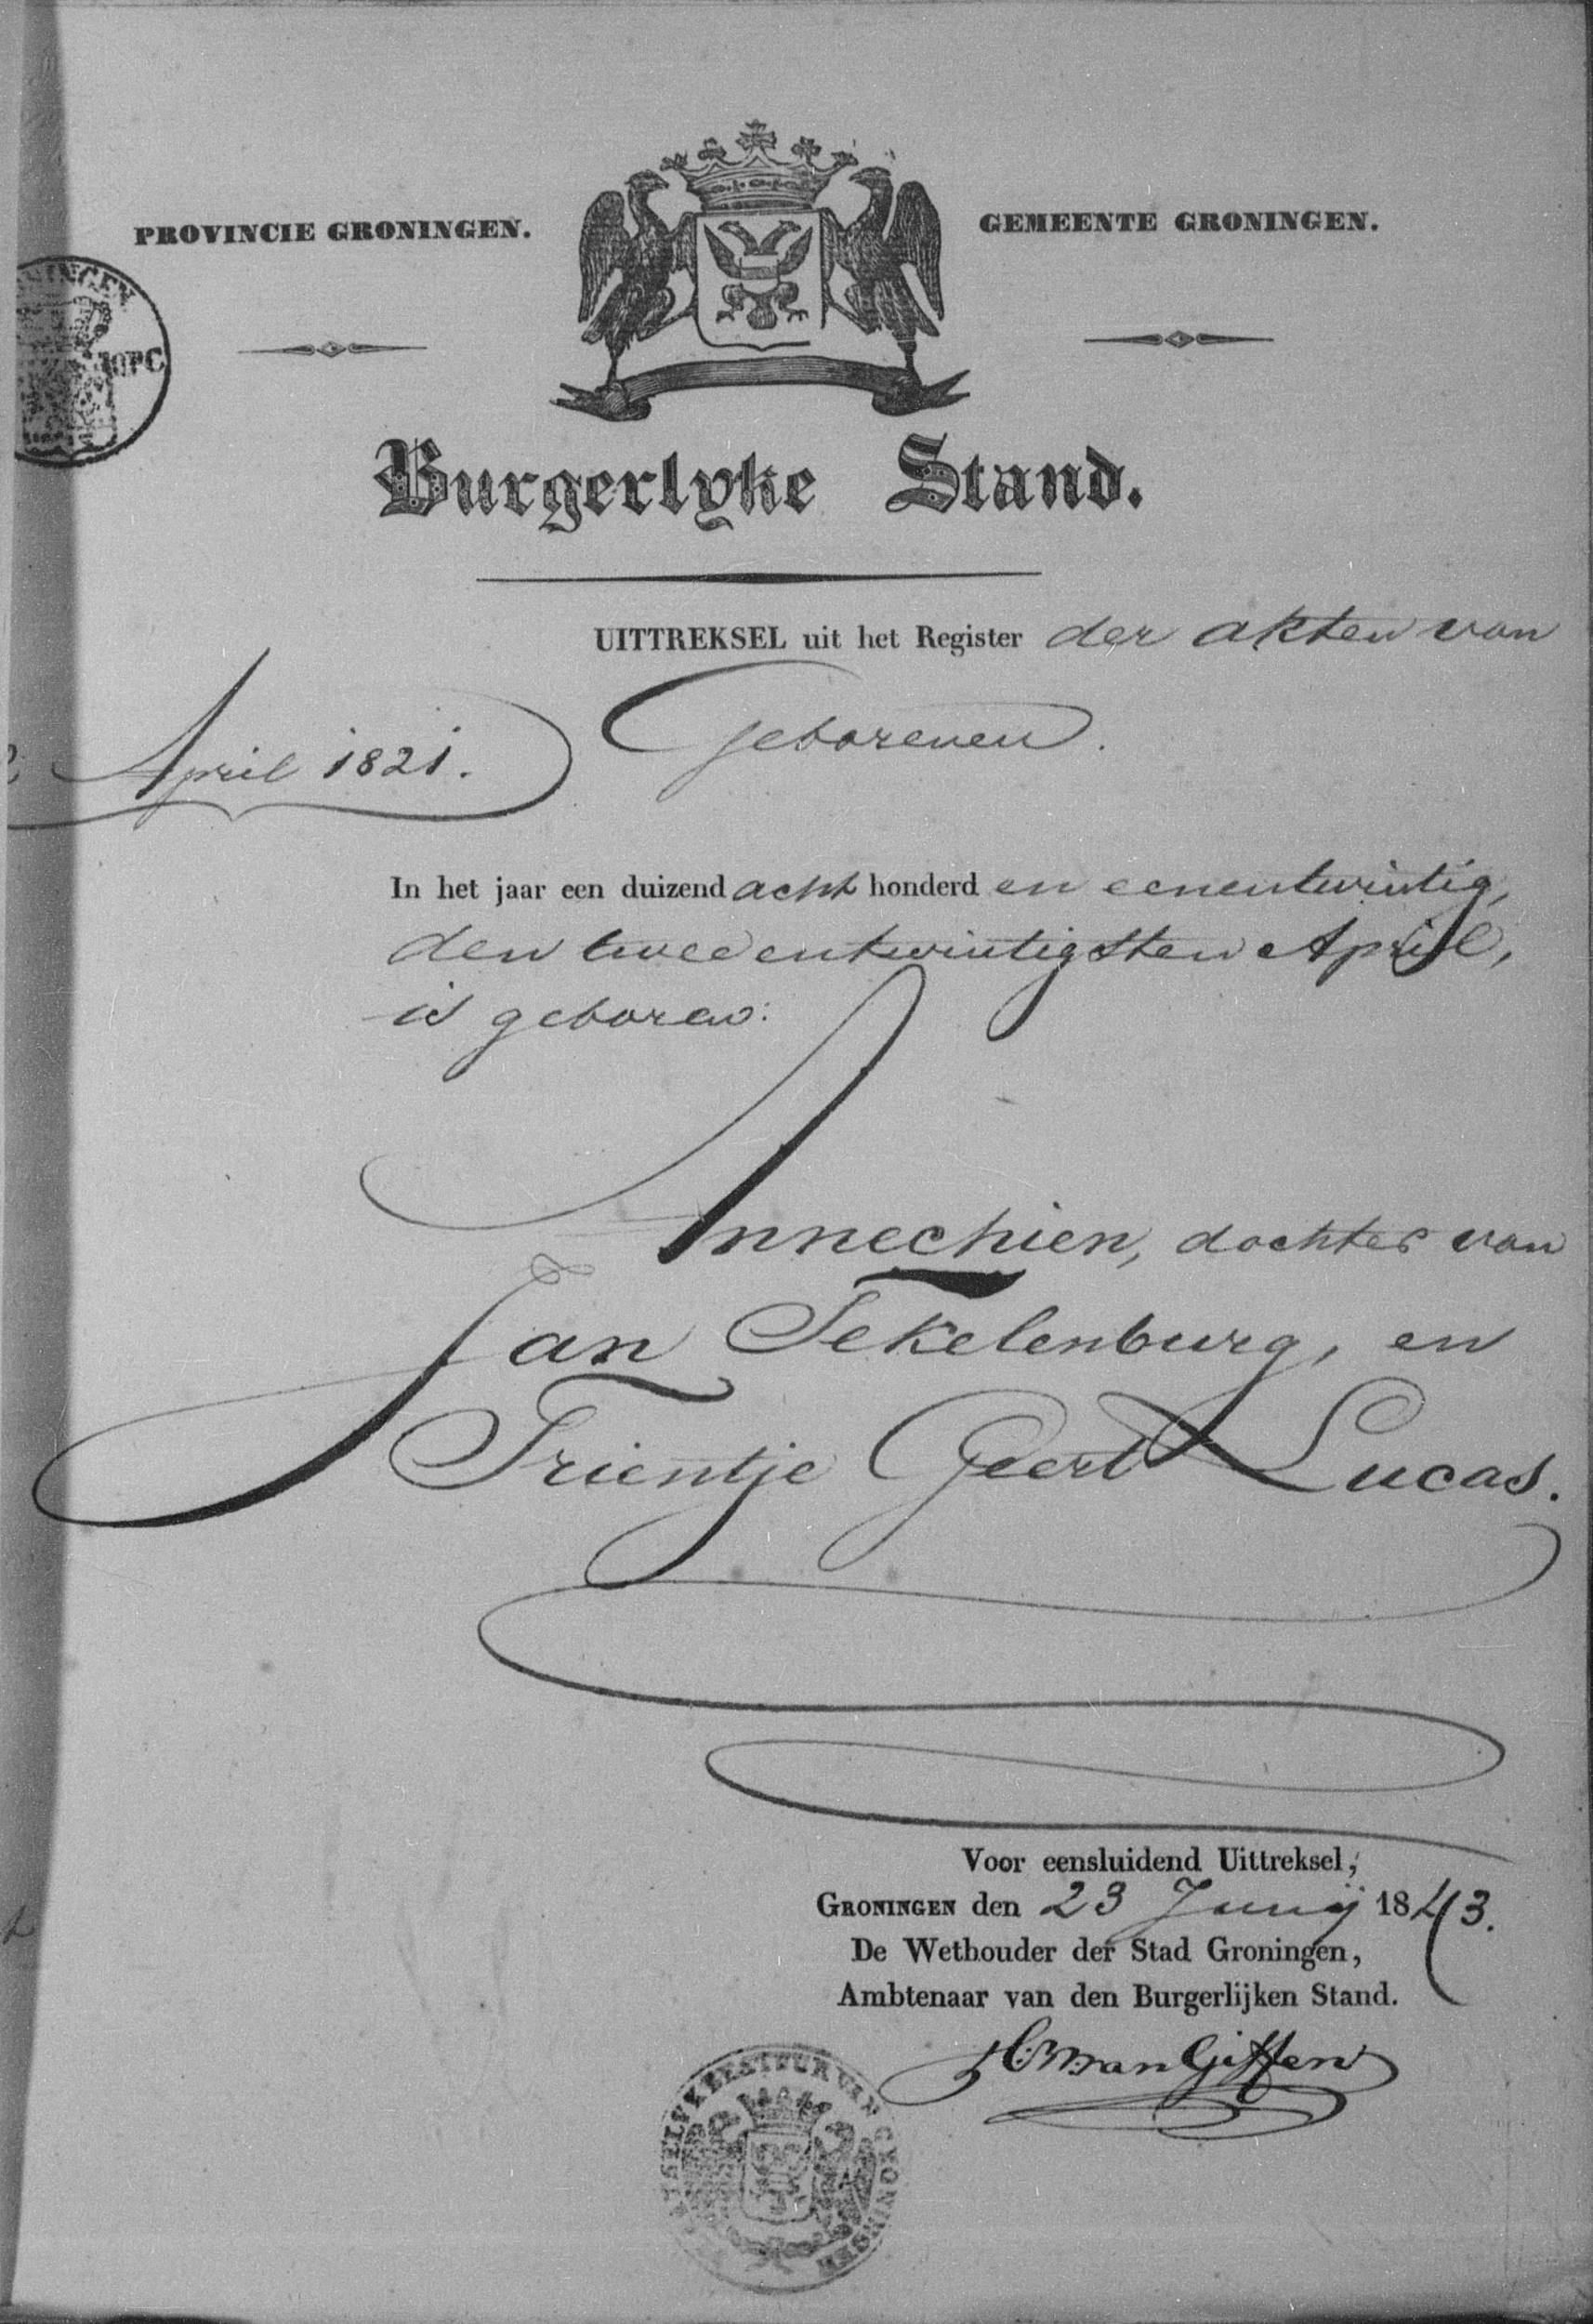 PROVINCIE GRONINGEN.
GEMEENTE GRONINGEN.
NINGEN
10PC
Burgerlyke Stand.
UITTREKSEL uit het Register der akten van
Geborenen.
April 1821.
In het jaar een duizend acht honderd en eenentwintig,
den tweeentwintigsten April,
is geboren:
Annechien, dochter van
Jan Tekelenburg, en
Trientje Geert Lucas.
Voor eensluidend Uittreksel,
GRONINGEN den 23 Junij 1843.
De Wethouder der Stad Groningen,
Ambtenaar van den Burgerlijken Stand.
van Giffen
BESTUUR VAN GRONINGEN